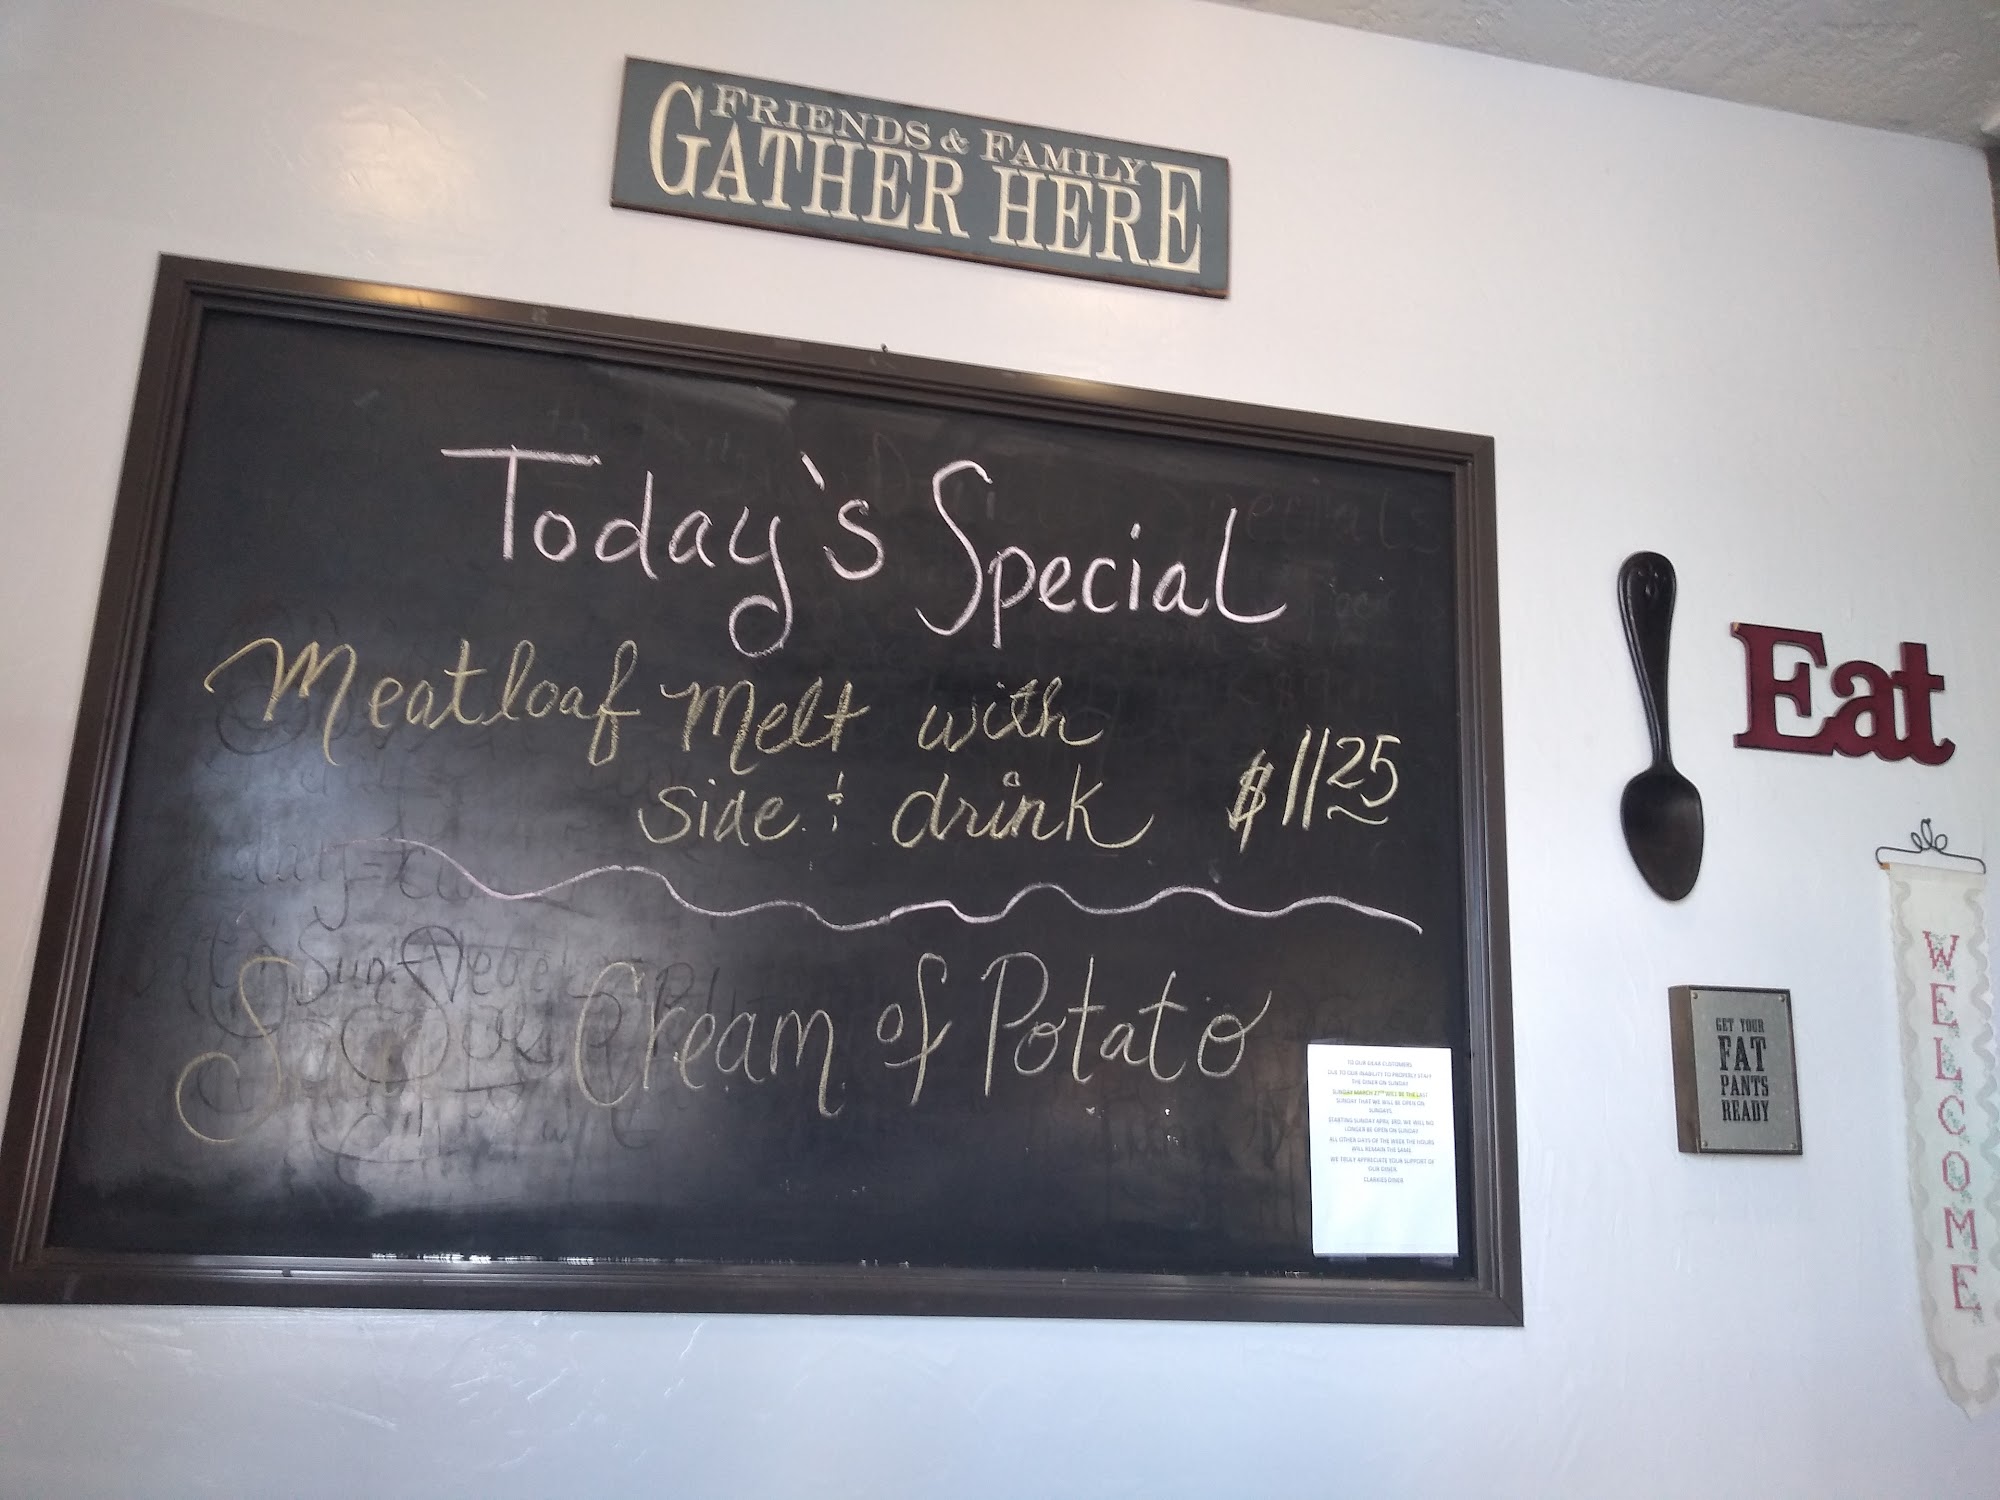 FRIENDS & FAMILY
GATHER HERE
Today's Special
Meatloaf Melt with
side & drink $11.25
Soup Cream of Potato
TO OUR DEAR CUSTOMERS
DUE TO OUR INABILITY TO PROPERLY STAFF
THE DINER ON SUNDAY
SUNDAY MARCH 27TH WILL BE THE LAST
SUNDAY THAT WE WILL BE OPEN ON
SUNDAYS
STARTING SUNDAY APRIL 3RD, WE WILL NO
LONGER BE OPEN ON SUNDAY
ALL OTHER DAYS OF THE WEEK THE HOURS
WILL REMAIN THE SAME
WE TRULY APPRECIATE YOUR SUPPORT OF
OUR DINER
CLARKIES DINER
Eat
GET YOUR
FAT
PANTS
READY
WELCOME